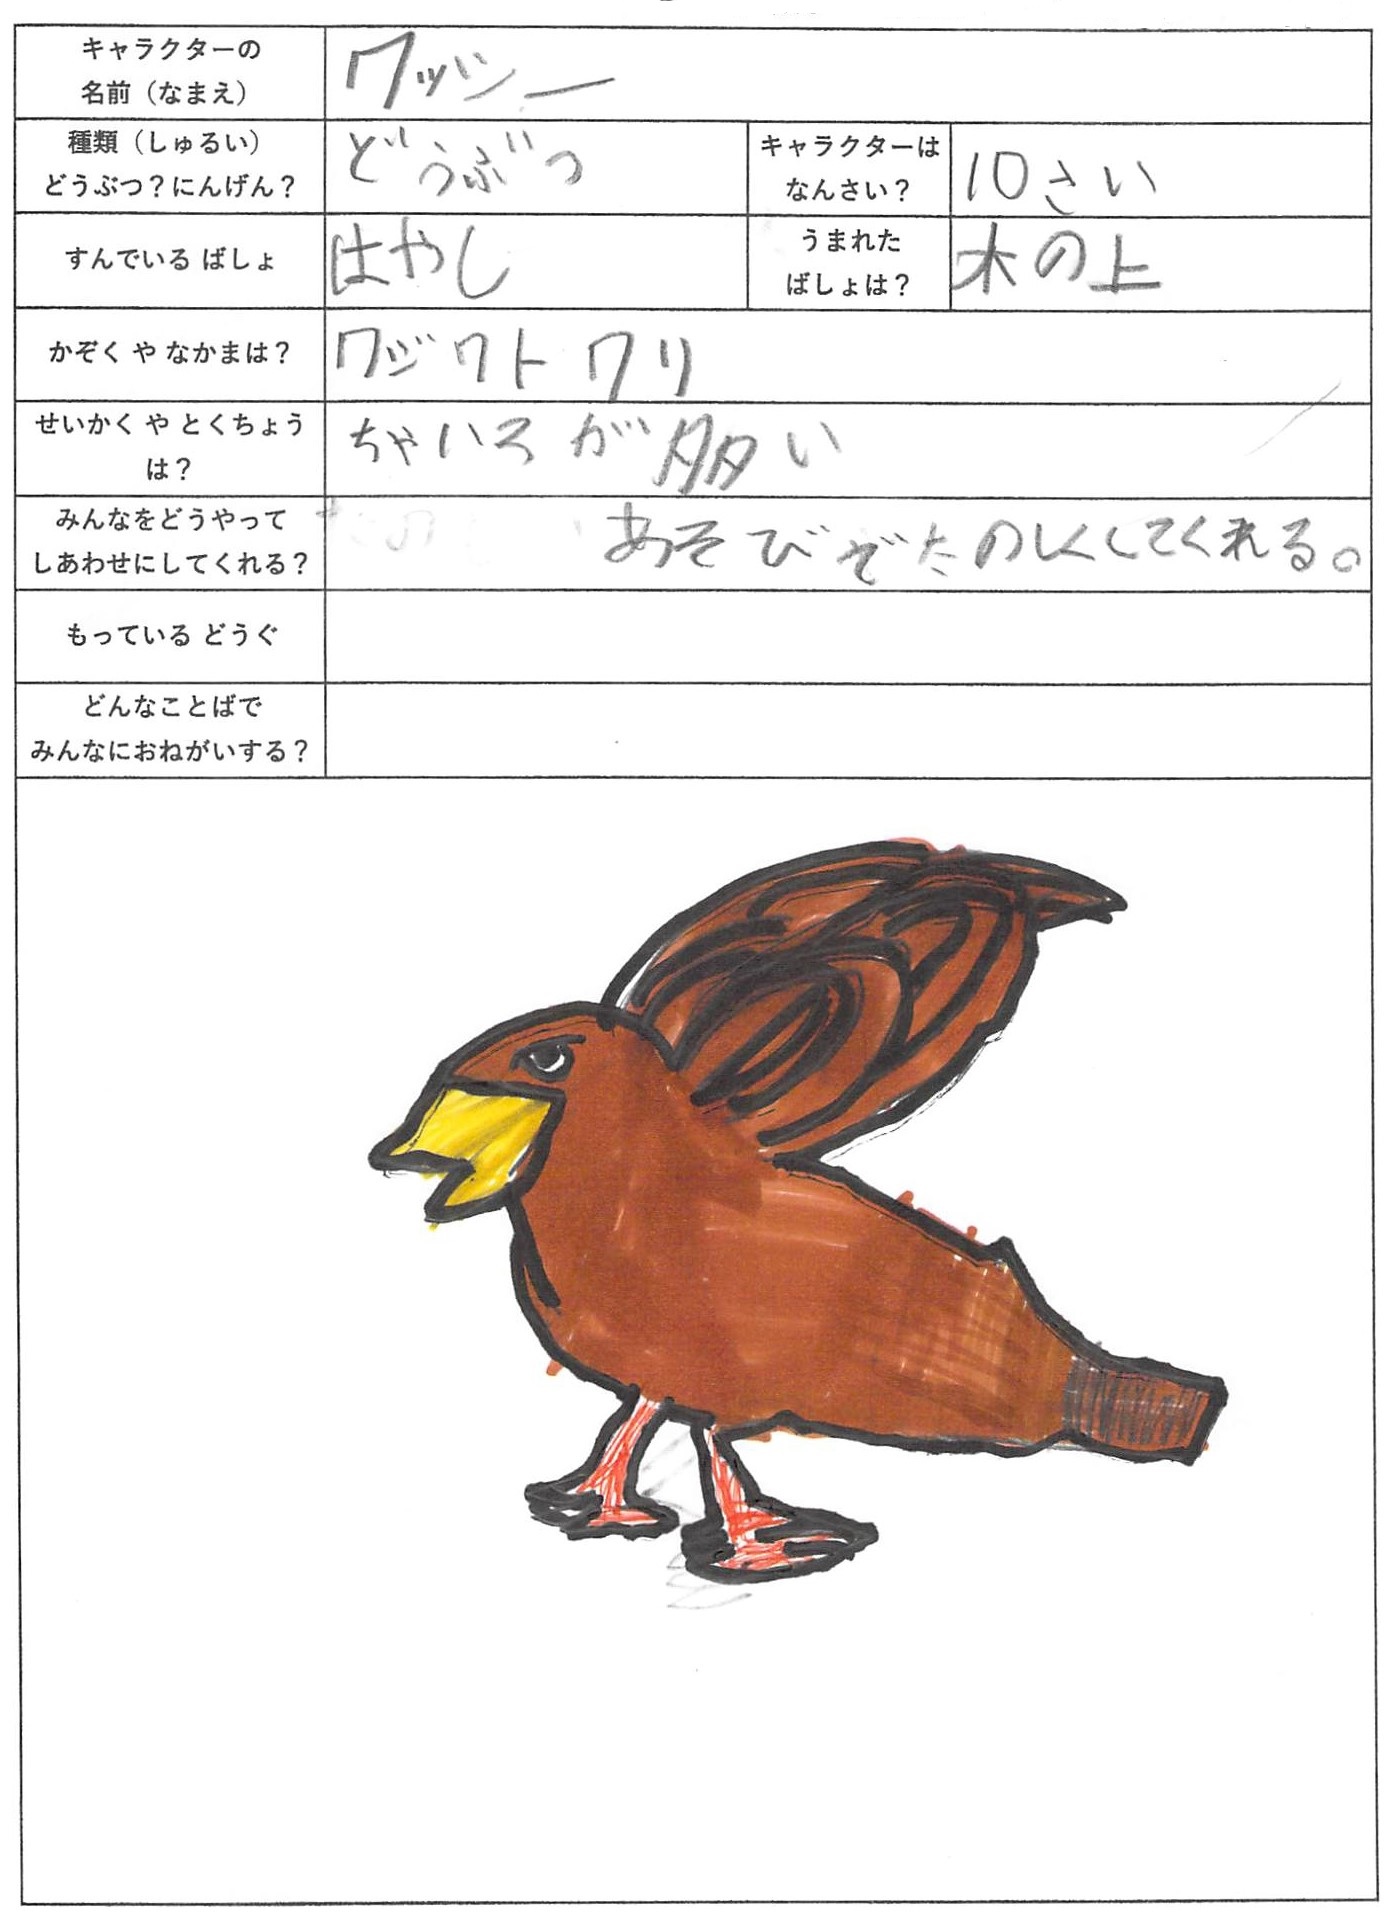 キャラクターの
名前（なまえ）
ワッシー
種類（しゅるい）
どうぶつ？にんげん？
どうぶつ
キャラクターは
なんさい？
10さい
すんでいる ばしょ
はやし
うまれた
ばしょは？
木の上
かぞく や なかまは？
ワジワトワリ
せいかく や とくちょう
は？
ちゃいろが多い
みんなをどうやって
しあわせにしてくれる？
あそびぞたのしくしてくれる。
もっている どうぐ
どんなことばで
みんなにおねがいする？